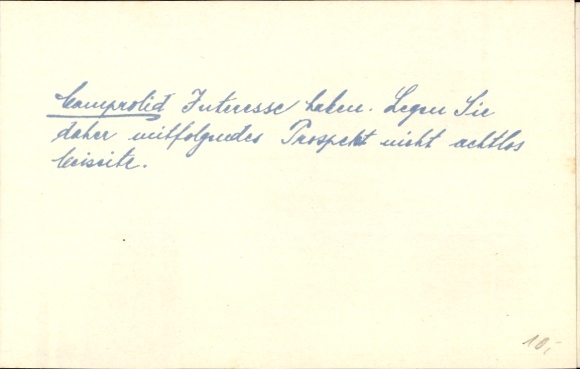 Camprolid Interesse haben. Legen Sie
daher mitfolgendes Prospekt nicht achtlos
beiseite.
10,-